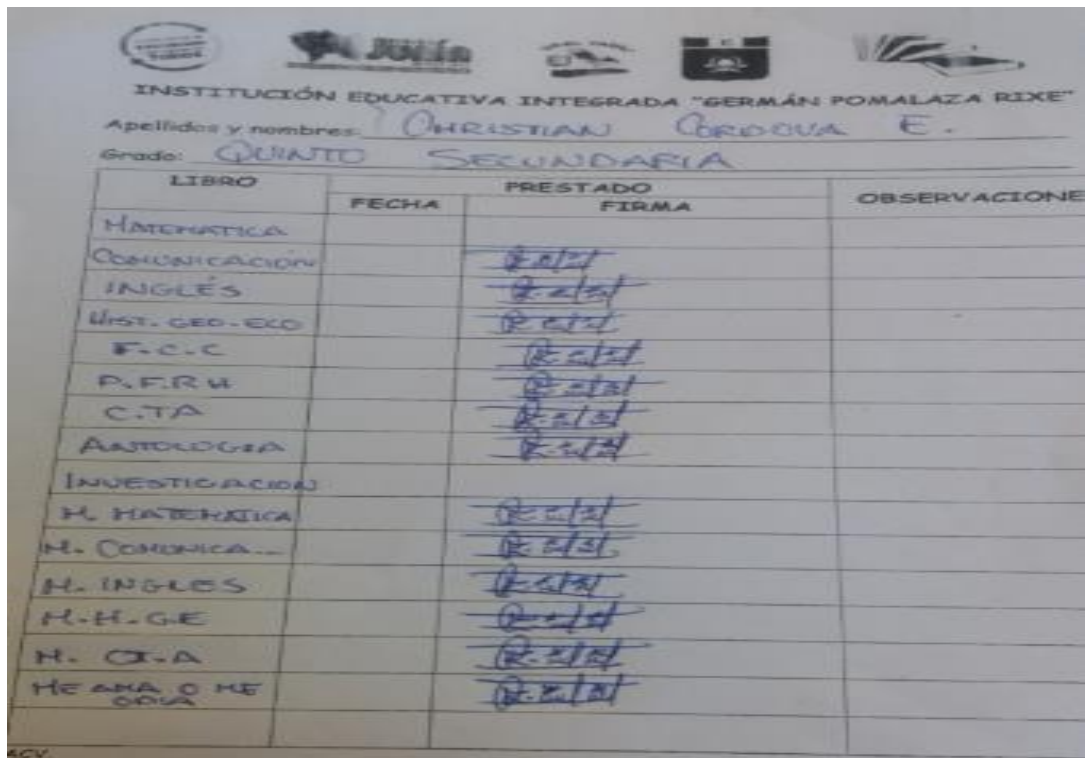 JUNÍN
INSTITUCIÓN EDUCATIVA INTEGRADA "GERMÁN POMALAZA RIXE"
Apellidos y nombres: CHRISTIAN CORDOVA E.
Grado: QUINTO SECUNDARIA
LIBRO PRESTADO OBSERVACIONE
FECHA FIRMA
MATEMATICA
COMUNICACIÓN
INGLÉS
HIST. GEO-ECO
F.C.C
P.F.RH
C.TA
ANTOLOGIA
INVESTIGACION
M. MATEMATICA
M. COMUNICA...
M. INGLES
M.H.G.E
M. CT-A
ME AMA O ME
ODIA
ACV.